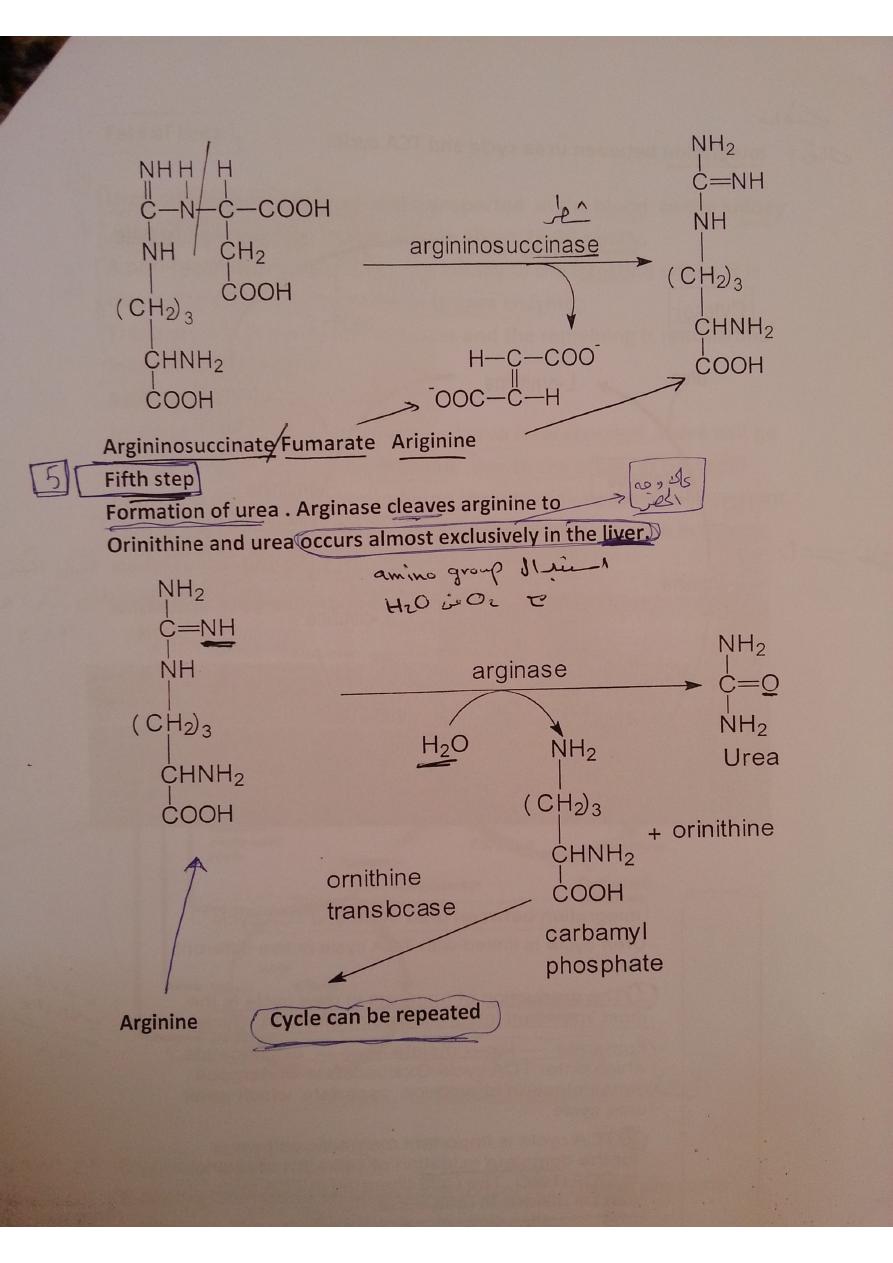 NH H H
C–N–C–COOH
NH CH2
COOH
(CH2)3
CHNH2
COOH
argininosuccinase
H–C–COO-
-OOC–C–H
NH2
C=NH
NH
(CH2)3
CHNH2
COOH
Argininosuccinate/Fumarate Ariginine
5 Fifth step
Formation of urea . Arginase cleaves arginine to
Orinithine and urea occurs almost exclusively in the liver.
استبدال amino group
H2O من O2 ب
NH2
C=NH
NH
(CH2)3
CHNH2
COOH
arginase
H2O
NH2
(CH2)3
CHNH2
COOH
+ orinithine
carbamyl
phosphate
NH2
C=O
NH2
Urea
ornithine
translocase
Arginine
Cycle can be repeated